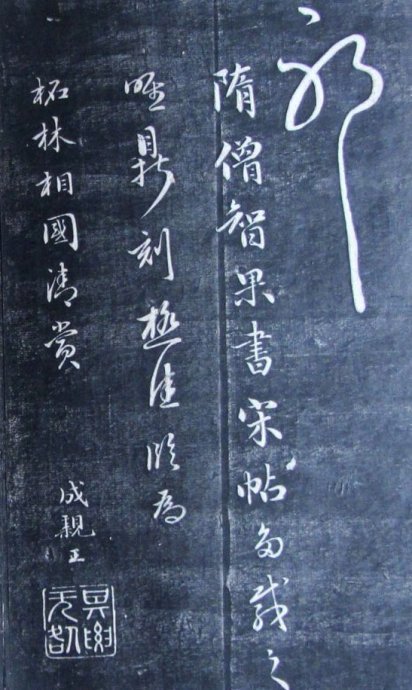 隋僧智果書宋帖多載之
唯鼎刻極佳臨為
柘林相國清賞
成親王